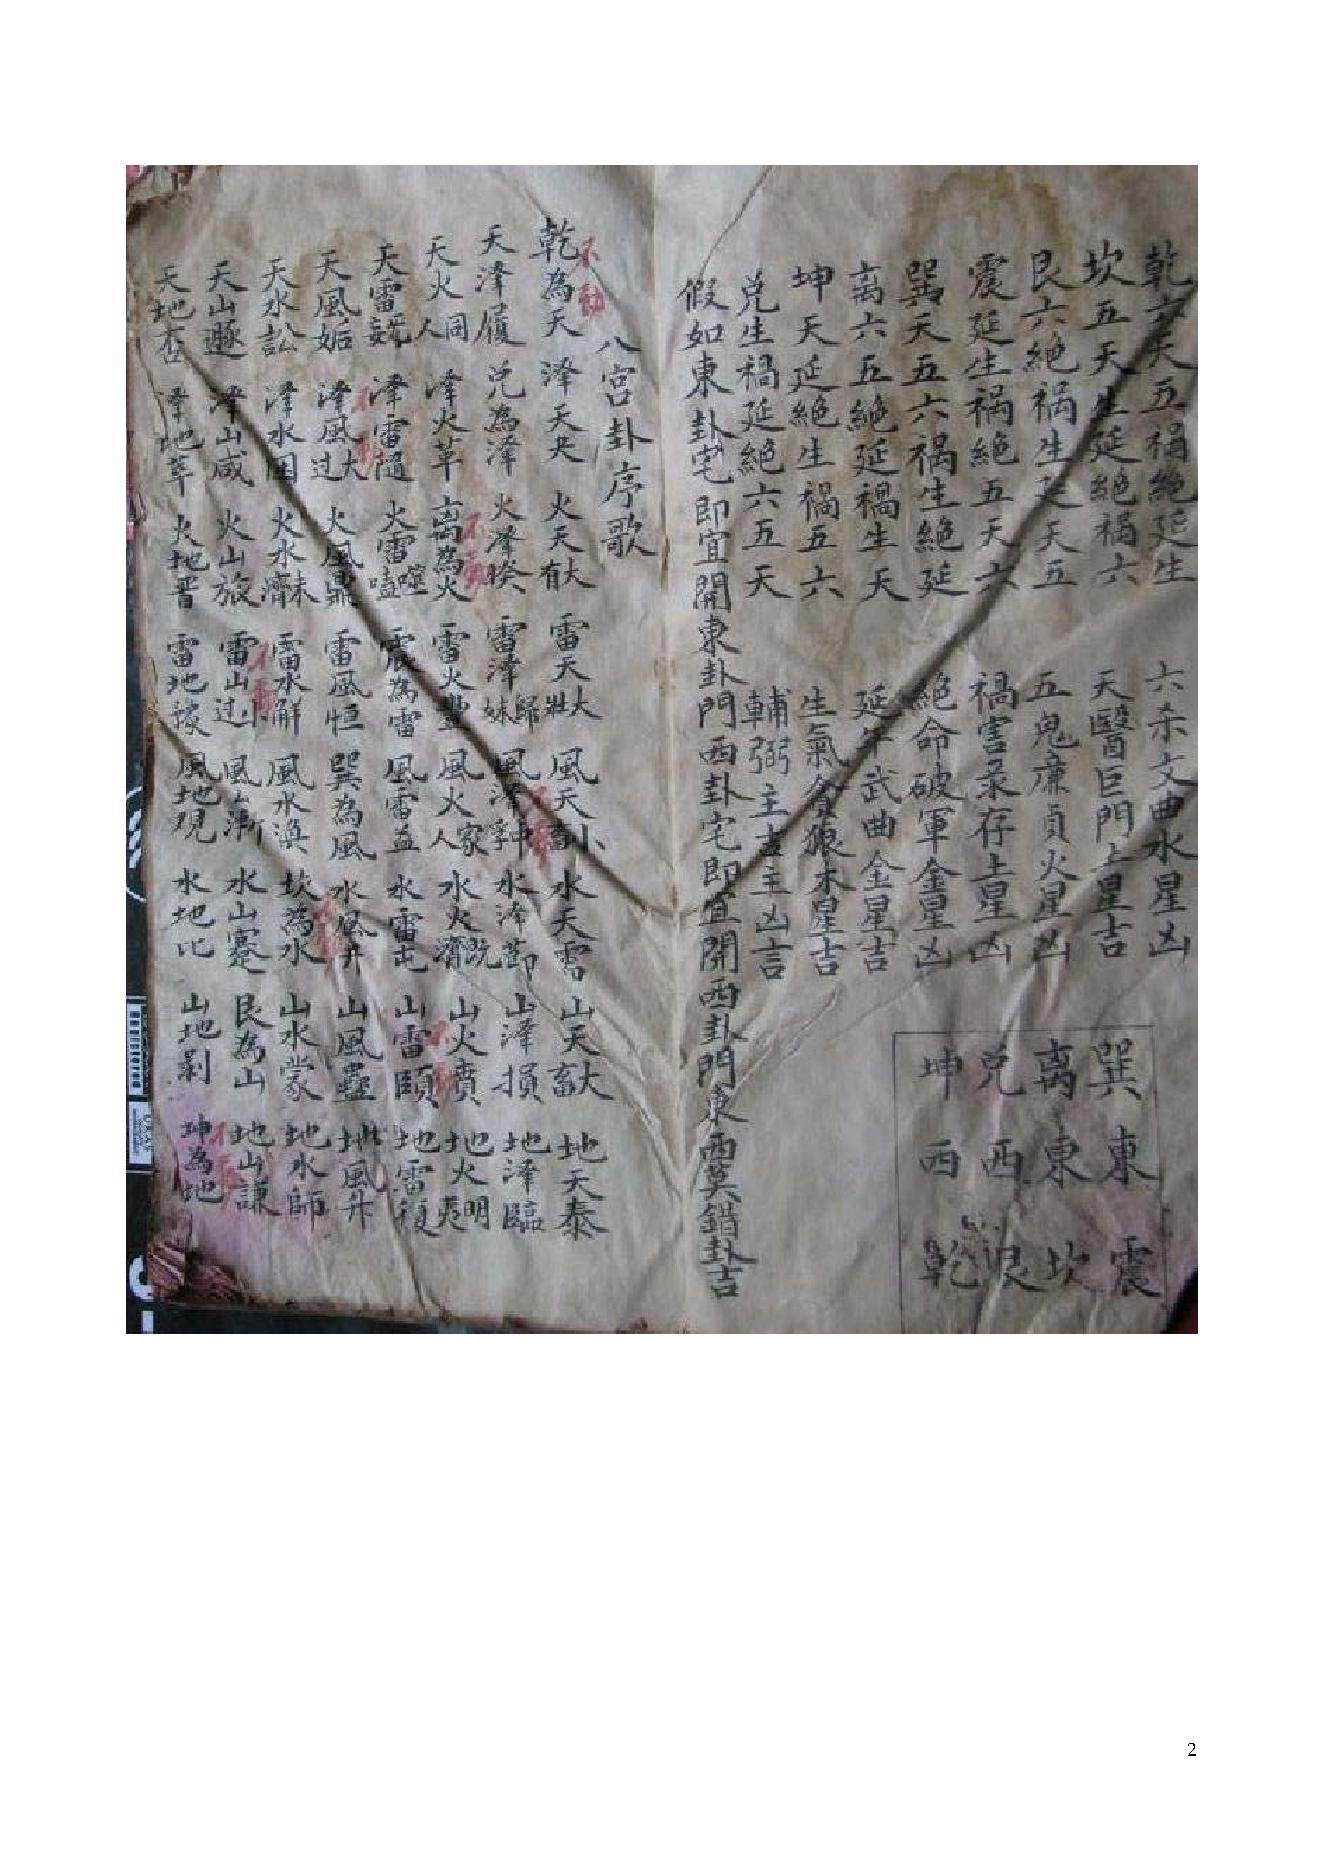 乾六天五禍絕延生
坎五天生延絕禍六
艮六絕禍生延天五
震延生禍絕五天六
巽天五六禍生絕延
离六五絕延禍生天
坤天延絕生禍五六
兌生禍延絕六五天
六杀文曲水星凶
天醫巨門土星吉
五鬼廉貞火星凶
禍害彔存土星凶
絕命破軍金星凶
延年武曲金星吉
生氣貪狼木星吉
輔弼主吉主凶言
巽 東 震
离 東 坎
兌 西 艮
坤 西 乾
假如東卦宅即宜開東卦門西卦宅即宜開西卦門東西莫錯卦吉
八宮卦序歌
不動
乾為天 泽天夬 火天大有 雷天大壯 風天小畜 水天需 山天大畜 地天泰
天泽履 兌為泽 火泽睽 雷泽歸妹 風泽中孚 水泽節 山泽損 地泽臨
天火同人 泽火革 离為火 雷火豐 風火家人 水火既濟 山火賁 地火明夷
天雷 泽雷隨 火雷噬嗑 震為雷 風雷益 水雷屯 山雷頤 地雷復
天風姤 泽風大过 火風鼎 雷風恒 巽為風 水風井 山風蠱 地風升
天水訟 泽水困 火水未濟 雷水解 風水渙 坎為水 山水蒙 地水師
天山遯 泽山咸 火山旅 雷山小过 風山漸 水山蹇 艮為山 地山謙
天地否 泽地萃 火地晋 雷地 風地观 水地比 山地剥 坤為地
2